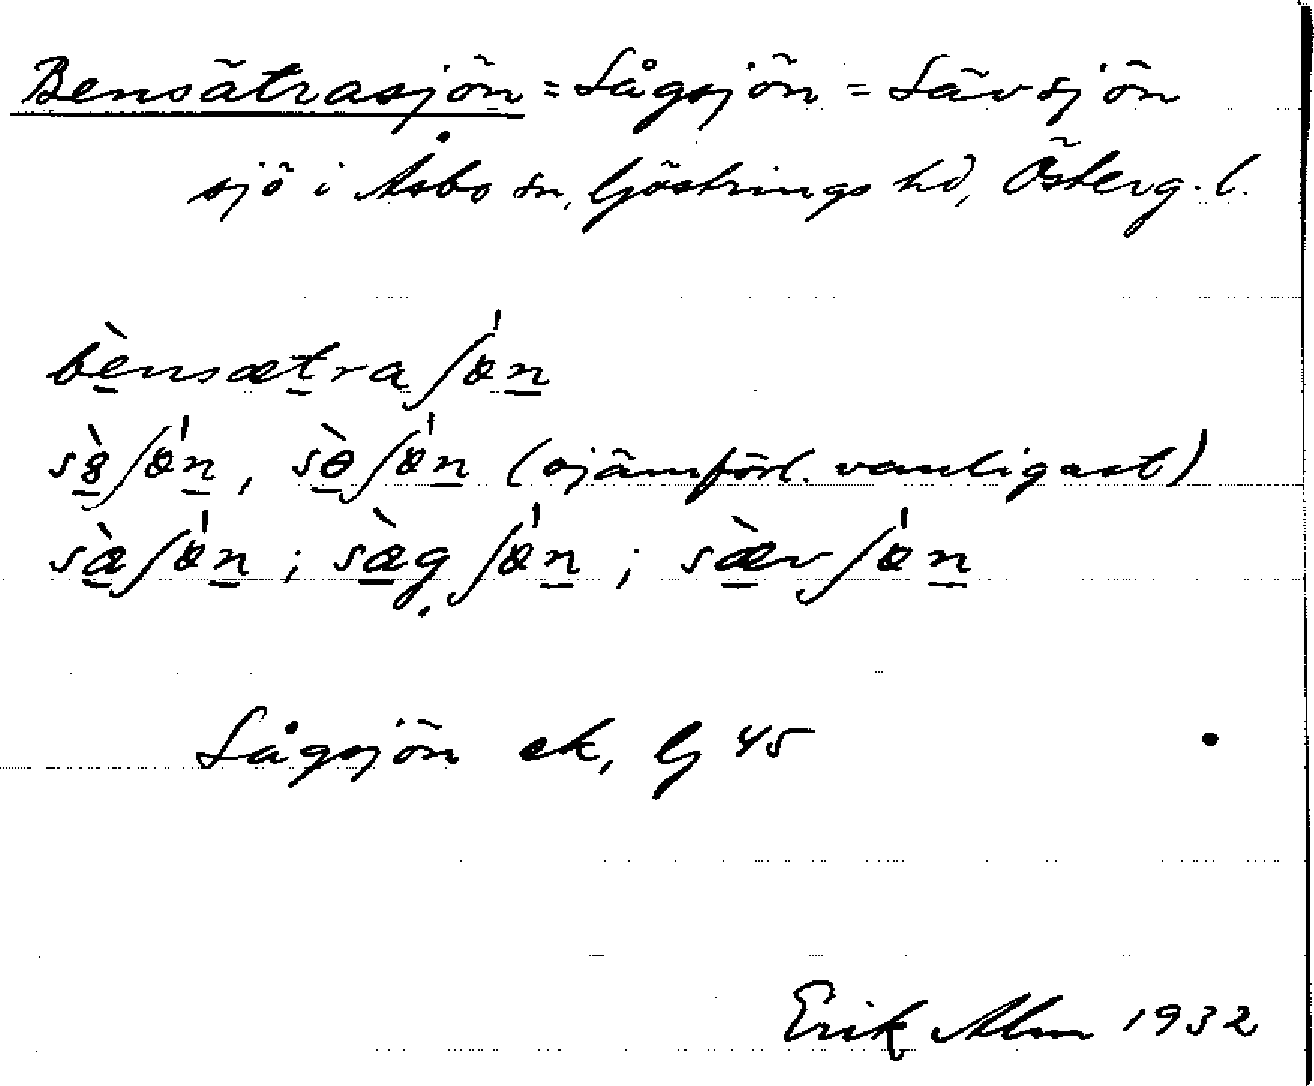 Bensätrasjön = Sågsjön = Sävsjön
sjö i Åsbo sn, Göstrings hd, Österg. l.
bènsætraʃøn
sʃøn, sèʃøn (ojämförl. vanligast)
sàʃøn ; sæ̀gʃøn ; sæ̀vʃøn
Sågsjön ek, Gj 45
Erik Alm 1932